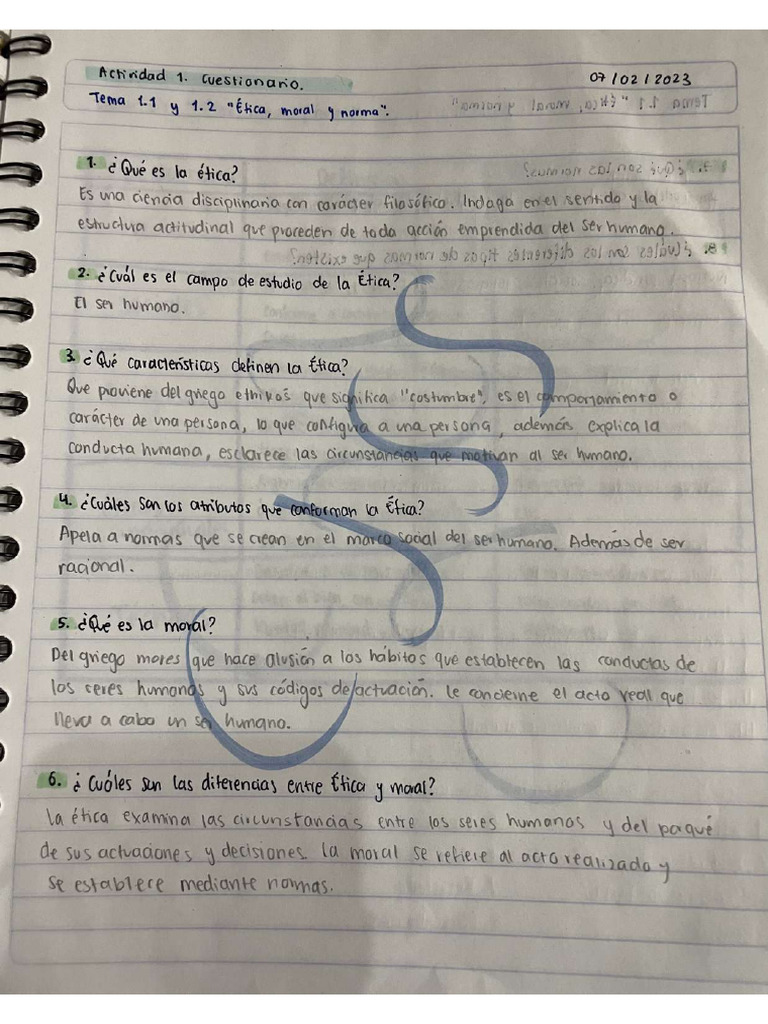 Actividad 1. Cuestionario.
07/02/2023
Tema 1.1 y 1.2 "Ética, moral y norma".
1. ¿Qué es la ética?
Es una ciencia disciplinaria con carácter filosófico. Indaga en el sentido y la
estructura actitudinal que proceden de toda acción emprendida del ser humano.
2. ¿Cuál es el campo de estudio de la Ética?
El ser humano.
3. ¿Qué características definen la Ética?
Que proviene del griego ethikos que significa "costumbre", es el comportamiento o
carácter de una persona, lo que configura a una persona, además explica la
conducta humana, esclarece las circunstancias que motivan al ser humano.
4. ¿Cuáles son los atributos que conforman la Ética?
Apela a normas que se crean en el marco social del ser humano. Además de ser
racional.
5. ¿Qué es la moral?
Del griego mores que hace alusión a los hábitos que establecen las conductas de
los seres humanos y sus códigos de actuación. Le concierne el acto real que
lleva a cabo un ser humano.
6. ¿Cuáles son las diferencias entre Ética y moral?
La ética examina las circunstancias entre los seres humanos y del porqué
de sus actuaciones y decisiones. La moral se refiere al acto realizado y
se establece mediante normas.